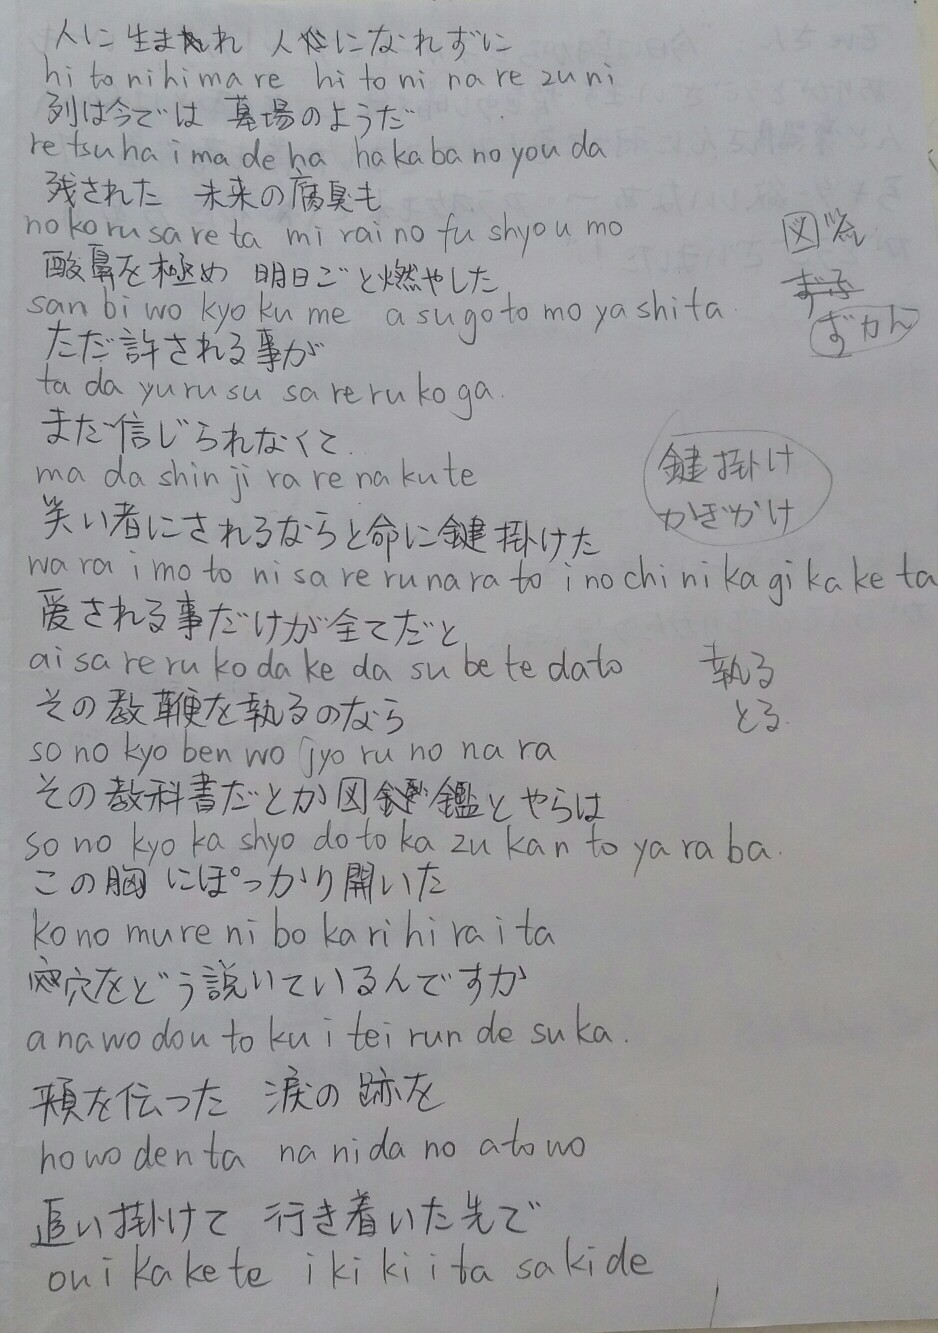 人に生まれ 人になれずに
hi to ni hi ma re hi to ni na re zu ni
列は今では 墓場のようだ
re tsu ha i ma de ha ha ka ba no you da
残された 未来の腐臭も
no ko ru sa re ta mi rai no fu shyou mo
酸鼻を極め 明日ごと燃やした
san bi wo kyo ku me a su go to mo ya shi ta
ただ許される事が
ta da yu ru su sa re ru ko ga
まだ信じられなくて
ma da shin ji ra re na ku te
笑い者にされるならと命に鍵掛けた
wa ra i mo to ni sa re ru na ra to i no chi ni ka gi ka ke ta
愛される事だけが全てだと
ai sa re ru ko da ke da su be te da to
その教鞭を執るのなら
so no kyo ben wo jyo ru no na ra
その教科書だとか図鑑とやらは
so no kyo ka shyo do to ka zu kan to ya ra ba
この胸にぽっかり開いた
ko no mu re ni bo ka ri hi ra i ta
穴をどう説いているんですか
a na wo dou to ku i tei run de su ka
頬を伝った 涙の跡を
ho wo den ta na ni da no a to wo
追い掛けて 行き着いた先で
ou i ka ke te i ki ki i ta sa ki de
図
ずかん
鍵掛け
かぎかけ
執る
とる